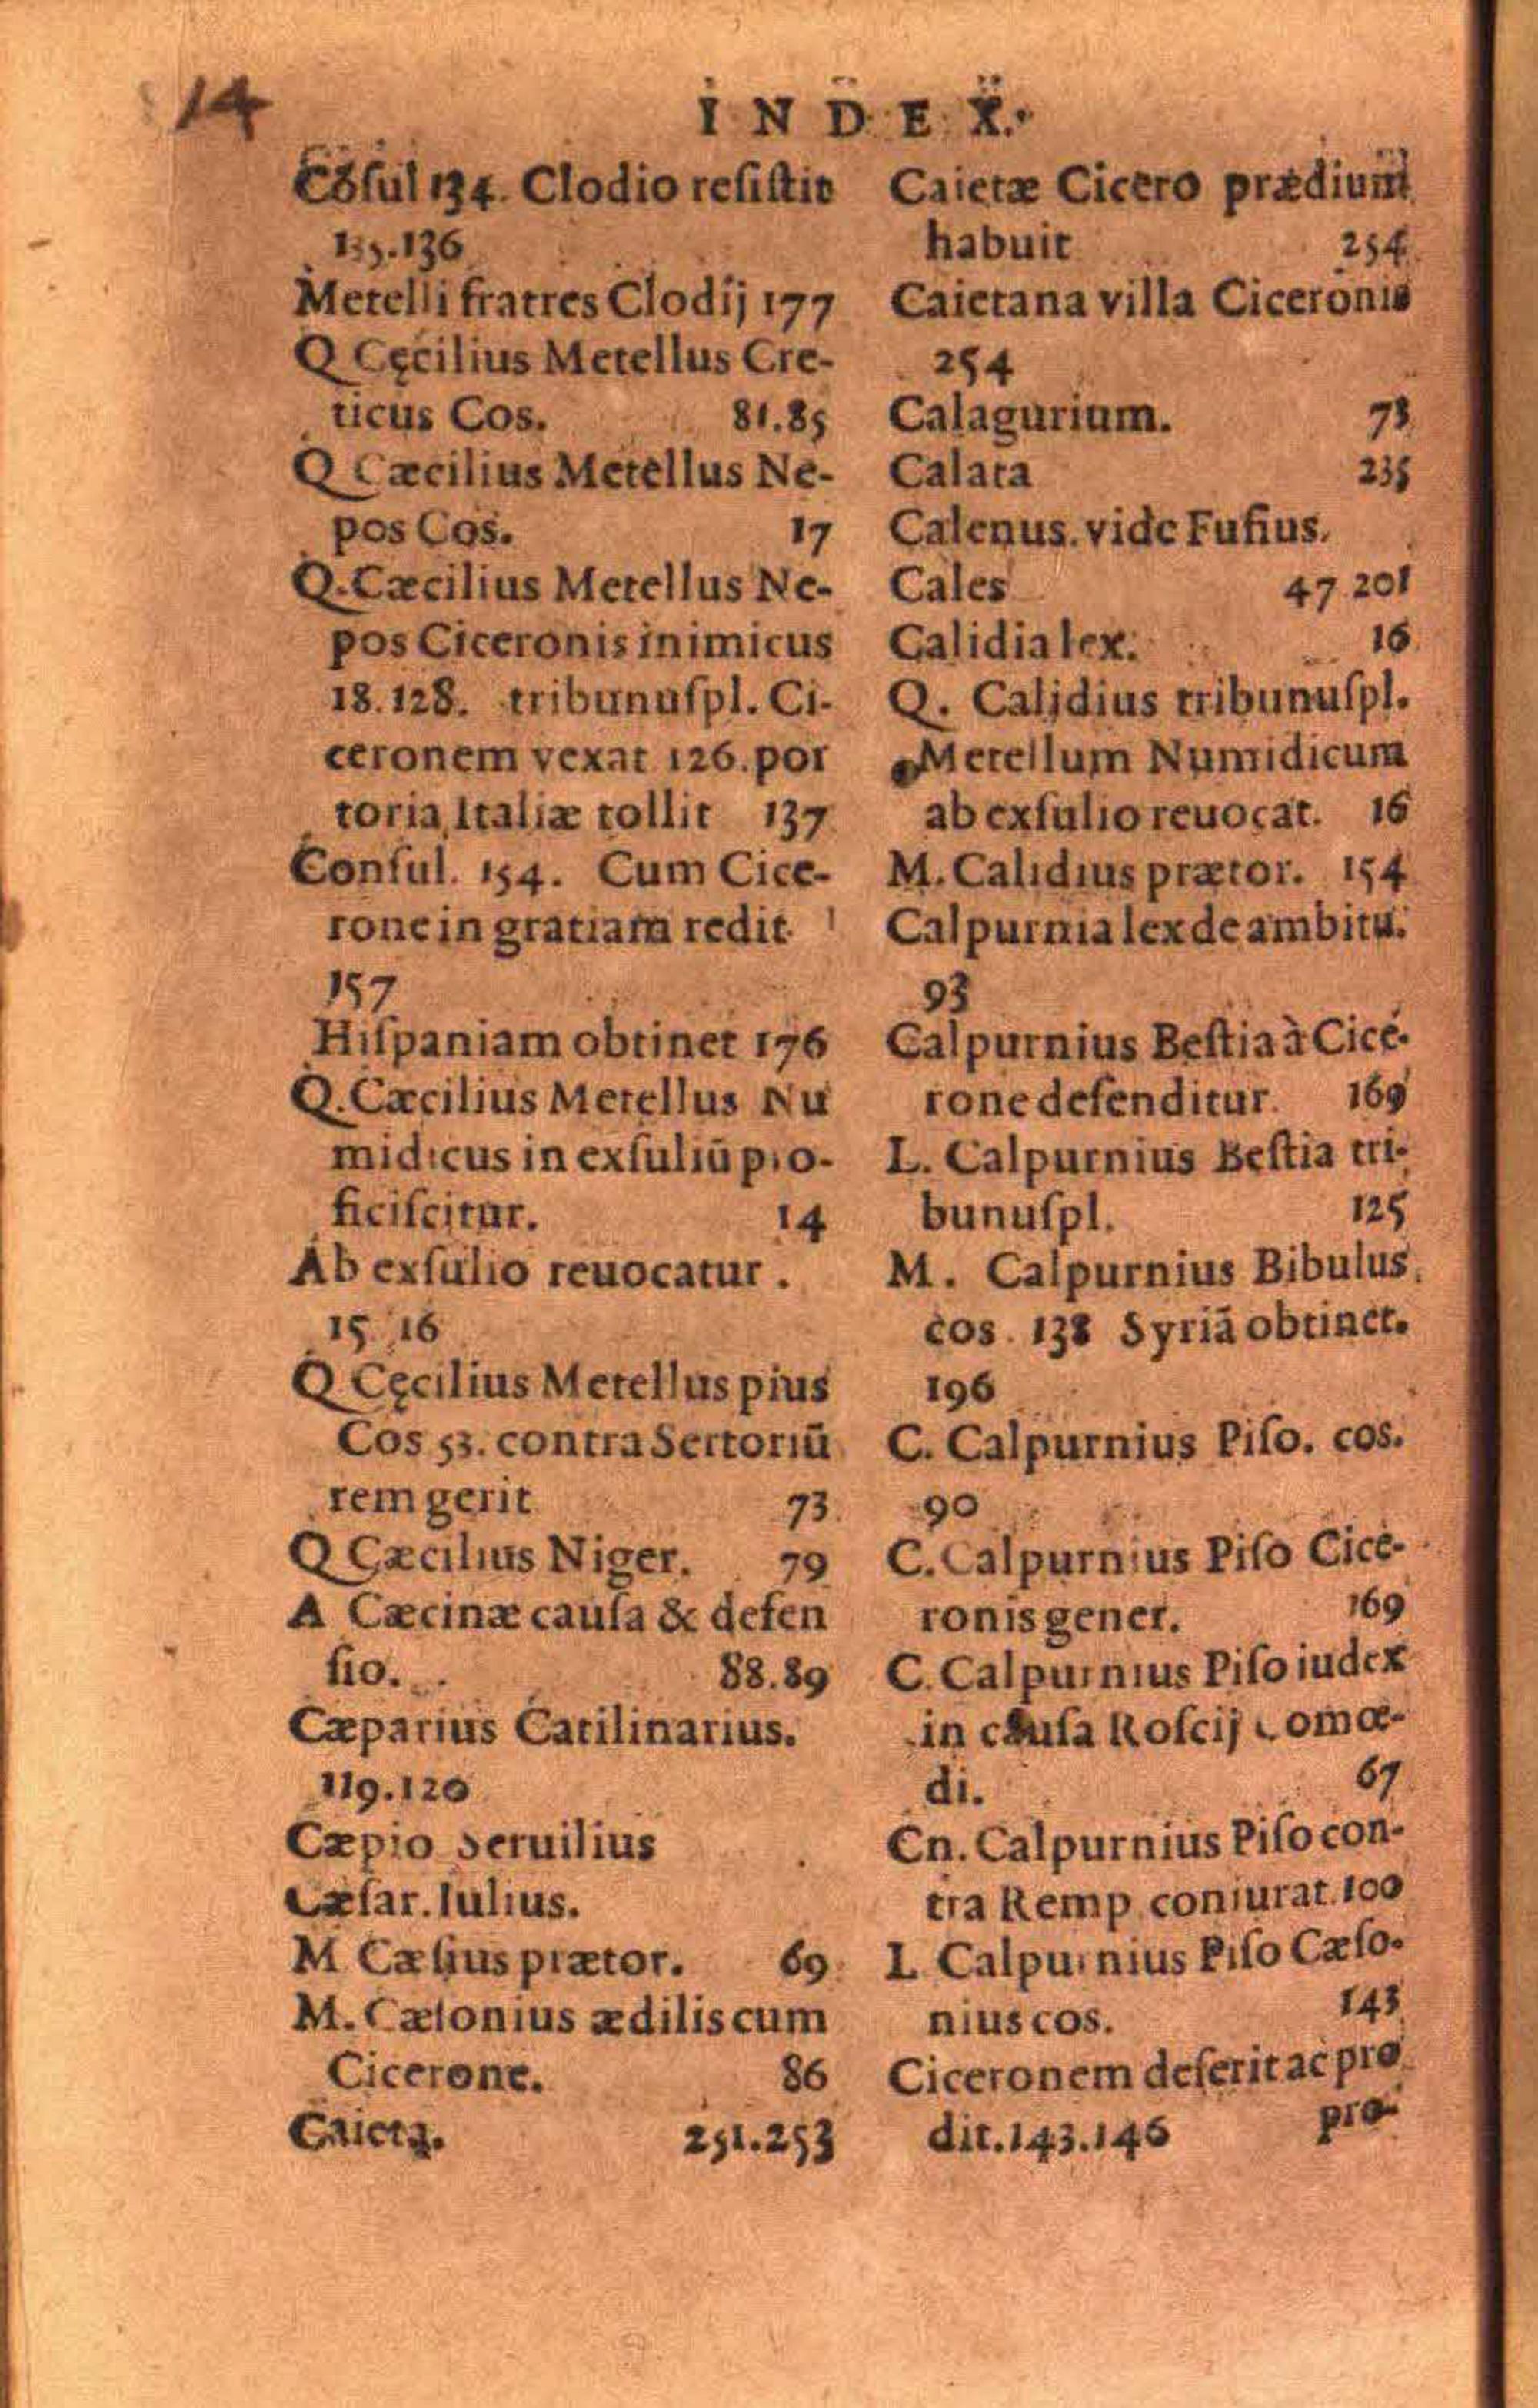 14
INDEX.
Cõſul 134. Clodio reſiſtit
135.136
Metelli fratres Clodij 177
Q Cęcilius Metellus Cre-
ticus Cos. 81.85
Q Cæcilius Metellus Ne-
pos Cos. 17
Q. Cæcilius Metellus Ne-
pos Ciceronis inimicus
18.128. tribunuſpl. Ci-
ceronem vexat 126. por
toria Italiæ tollit 137
Conſul. 154. Cum Cice-
rone in gratiam redit
157
Hiſpaniam obtinet 176
Q. Cæcilius Metellus Nu
midicus in exſuliū pro-
ficiſcitur. 14
Ab exſulio reuocatur.
15 16
Q Cęcilius Metellus pius
Cos 53. contra Sertoriū
rem gerit 73
Q Cæcilius Niger. 79
A Cæcinæ cauſa & defen
ſio. 88.89
Cæparius Catilinarius.
119.120
Cæpio Seruilius
Cæſar. Iulius.
M Cæſius prætor. 69
M. Cæſonius ædilis cum
Cicerone. 86
Caieta. 251.253
Caietæ Cicero prædium
habuit 254
Caietana villa Ciceronis
254
Calagurium. 73
Calata 235
Calenus. vide Fufius.
Cales 47 201
Calidia lex. 16
Q. Calidius tribunuſpl.
Metellum Numidicum
ab exſulio reuocat. 16
M. Calidius prætor. 154
Calpurnia lex de ambitu.
93
Calpurnius Beſtia à Cice-
rone defenditur. 169
L. Calpurnius Beſtia tri-
bunuſpl. 125
M. Calpurnius Bibulus
cos. 138 Syriā obtinet.
196
C. Calpurnius Piſo. cos.
90
C. Calpurnius Piſo Cice-
ronis gener. 169
C. Calpurnius Piſo iudex
in cauſa Roſcij Comœ-
di. 67
Cn. Calpurnius Piſo con-
tra Remp coniurat. 100
L Calpurnius Piſo Cæſo-
nius cos. 143
Ciceronem deſerit ac pro
dit. 143.146
pro-